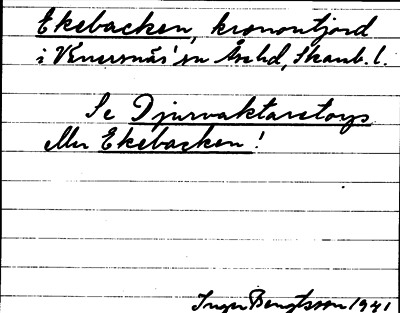 Ekebacken, kronontjord
i Venersnäs'sn Åse hd, Skarab. l.
Se Djurvaktaretorp
eller Ekebacken!
Inger Bengtsson 1941